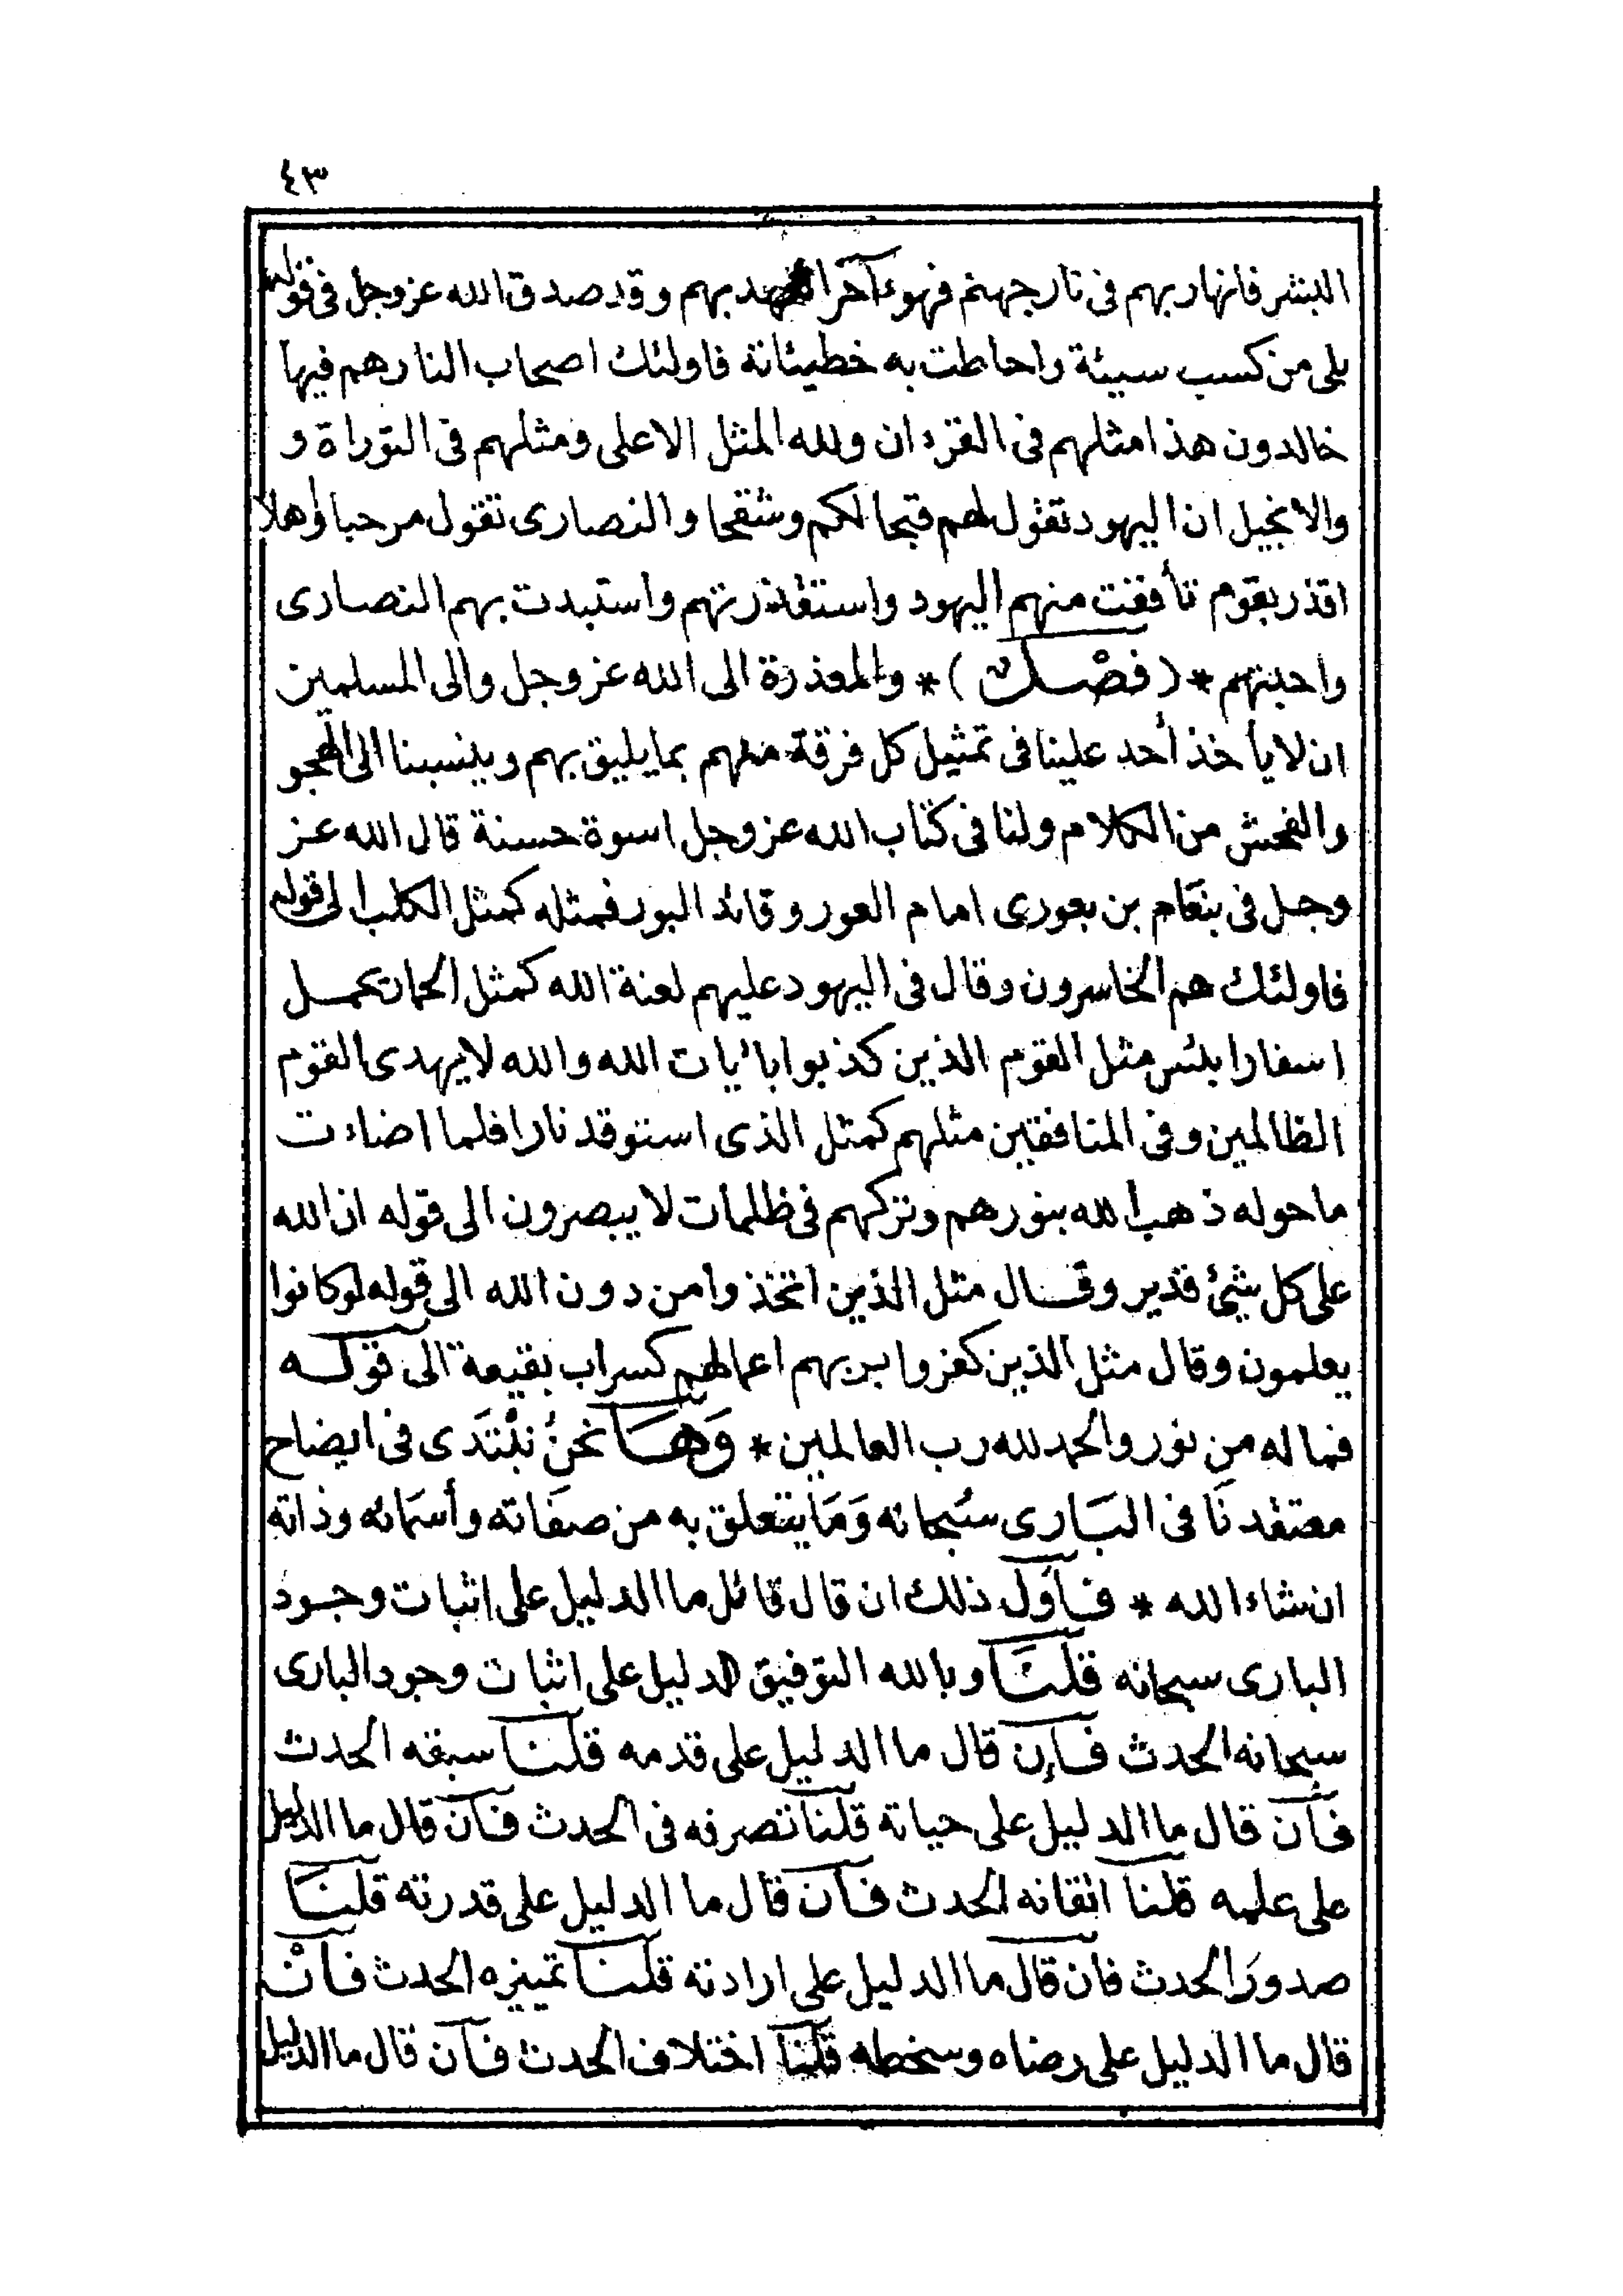 ٤٣
البشر فانهار بهم فى نار جهنم فهوء آخر العهد بهم وقد صدق الله عز وجل فى قوله
بلى من كسب سيئة واحاطت به خطيئاتة فاولئك اصحاب النار هم فيها
خالدون هذا مثلهم فى القرءان ولله المثل الاعلى ومثلهم فى التوراة و
والانجيل ان اليهود تقول لهم قبحا لكم وشقحا والنصارى تقول مرحبا واهلا
اقذر بقوم تأففت منهم اليهود واستقذرتهم واستبدت بهم النصارى
واحبتهم * (فصل) * والمعذرة الى الله عز وجل والى المسلمين
ان لا يأخذ أحد علينا فى تمثيل كل فرقة منهم بما يليق بهم وينسبنا الى الهجو
والفحش من الكلام ولنا فى كتاب الله عز وجل اسوة حسنة قال الله عز
وجل فى بنعام بن بعورى امام العور وقائد البور فمثله كمثل الكلب الى قوله
فاولئك هم الخاسرون وقال فى اليهود عليهم لعنة الله كمثل الحمار يحمل
اسفارا بئس مثل القوم الذين كذبوا بائيات الله والله لا يهدى القوم
الظالمين وفى المنافقين مثلهم كمثل الذى استوقد نارا فلما اضاءت
ما حوله ذهب الله بنورهم وتركهم فى ظلمات لا يبصرون الى قوله ان الله
على كل شئ قدير وقال مثل الذين اتخذوا من دون الله الى قوله لو كانوا
يعلمون وقال مثل الذين كفروا بربهم اعمالهم كسراب بقيعة الى قوله
فما له من نور والحمد لله رب العالمين * وَهَا نحنُ نبْتَدى فى ايضاح
معتقدنَا فى البَارى سُبحانه وَمَا يتعلق به من صفَاته وأسمَائه وذاته
ان شاء الله * فأول ذلك ان قال قائل ما الدليل على اثبات وجود
البارى سبحانه قلنَا وبالله التوفيق الدليل على اثبات وجود البارى
سبحانه الحدث فإن قال ما الدليل على قدمه قلنا سبقه الحدث
فأن قال ما الدليل على حياته قلنا تصرفه فى الحدث فأن قال ما الدليل
على علمه قلنا اتقانه الحدث فأن قال ما الدليل على قدرته قلنَا
صدورَ الحدث فان قال ما الدليل على ارادته قلنا تمييزه الحدث فأنْ
قال ما الدليل على رضاه وسخطه قلنا اختلاف الحدث فأن قال ما الدليل